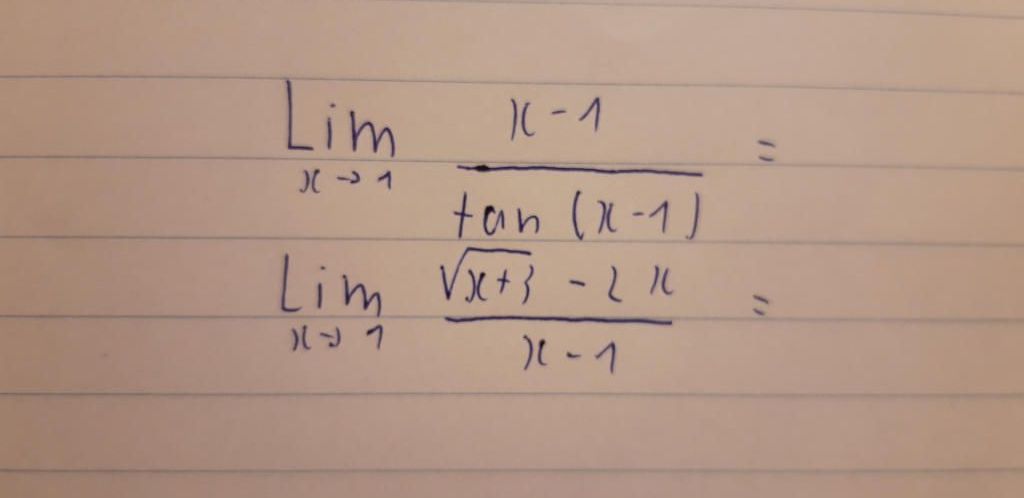 Lim x→1 (x-1)/(tan (x-1)) =
Lim x→1 (√(x+3) - 2x)/(x-1) =